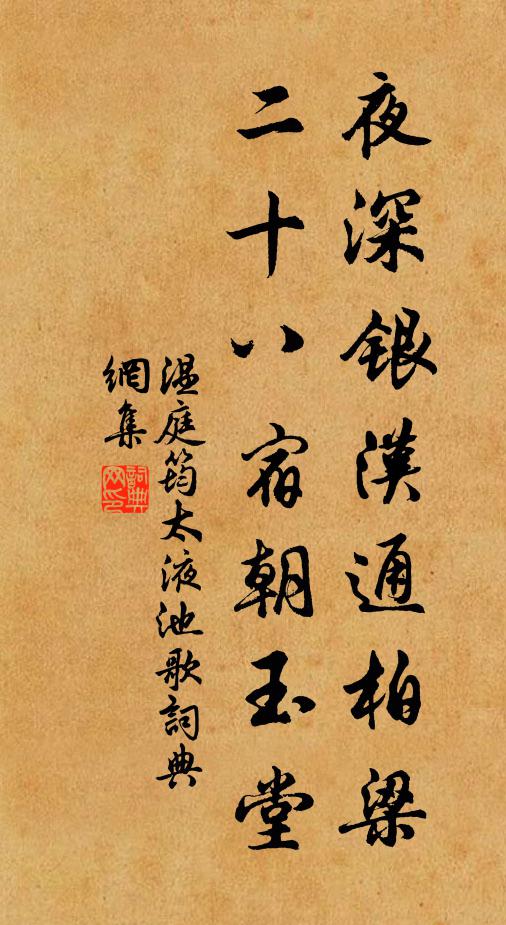 夜深銀漢通柏梁
二十八宿朝玉堂
温庭筠太液池歌詞典
網集
詞典
网印